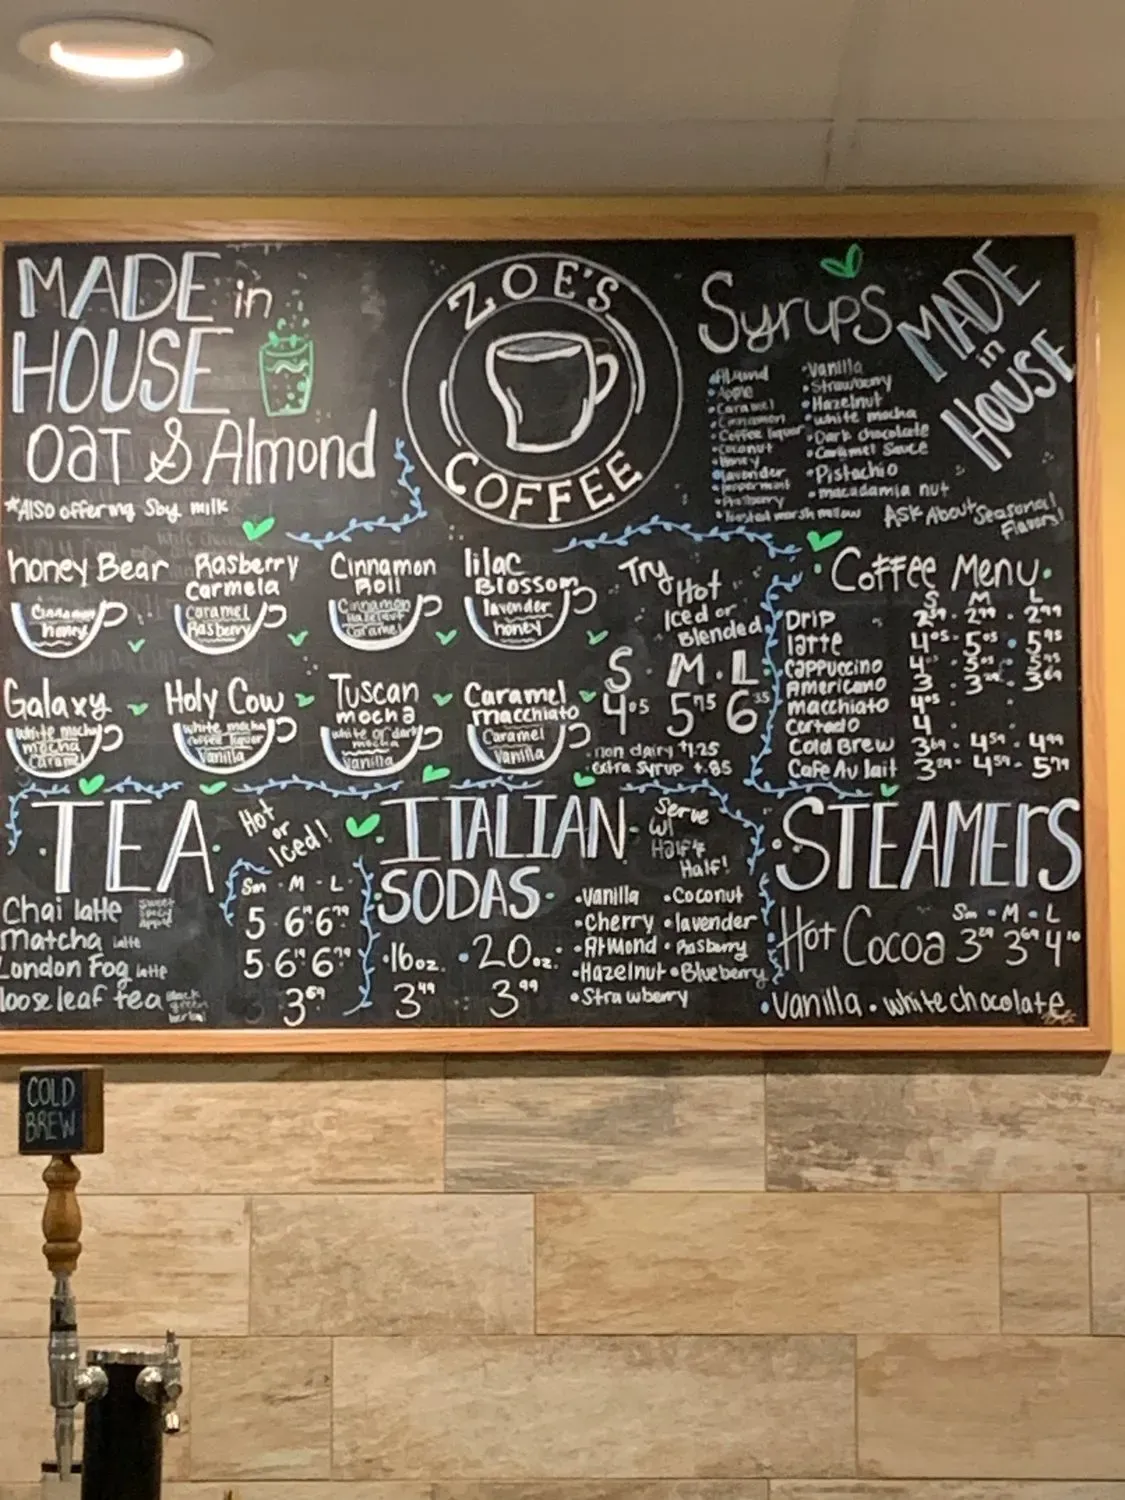 MADE in
HOUSE
oat & Almond
*Also offering Soy milk
ZOE'S
COFFEE
Syrups
MADE
in
HOUSE
•Almond
•Apple
•Caramel
•Cinnamon
•Coffee liquor
•Coconut
•Honey
•lavender
•Peppermint
•Toasted marshmallow
•Vanilla
•Strawberry
•Hazelnut
•white mocha
•Dark chocolate
•Caramel Sauce
•Pistachio
•macadamia nut
Ask About Seasonal
Flavors!
honey Bear
Cinnamon
honey
Rasberry
Carmela
Caramel
Rasberry
Cinnamon
Roll
Cinnamon
Hazelnut
Caramel
lilac
Blossom
lavender
honey
Galaxy
white mocha
mocha
Caramel
Holy Cow
white mocha
coffee liquor
Vanilla
Tuscan
mocha
white or dark
mocha
Vanilla
Caramel
macchiato
Caramel
Vanilla
Try
Hot
Iced or
Blended
S • M • L
4.05 5.75 6.35
•non dairy $1.25
•extra syrup +.85
Coffee Menu
S M L
Drip
latte 4.05 • 5.05 • 5.95
Cappuccino
Americano
macchiato 4.05
Cortado 4
Cold Brew 3.69 • 4.59 • 4.99
Cafe Au lait
TEA
Hot
or
Iced!
Sm • M • L
Chai latte sweet spicy apple
matcha latte
London Fog latte
loose leaf tea black green herbal 3.69
ITALIAN
SODAS
Serve
w/
Half &
Half!
•16oz. •20oz.
3.49 3.99
•Vanilla •Coconut
•Cherry •lavender
•Almond •Rasberry
•Hazelnut •Blueberry
•Strawberry
STEAMErS
Sm • M • L
Hot Cocoa 3.29 3.69 4.10
•Vanilla • white chocolate
COLD
BREW